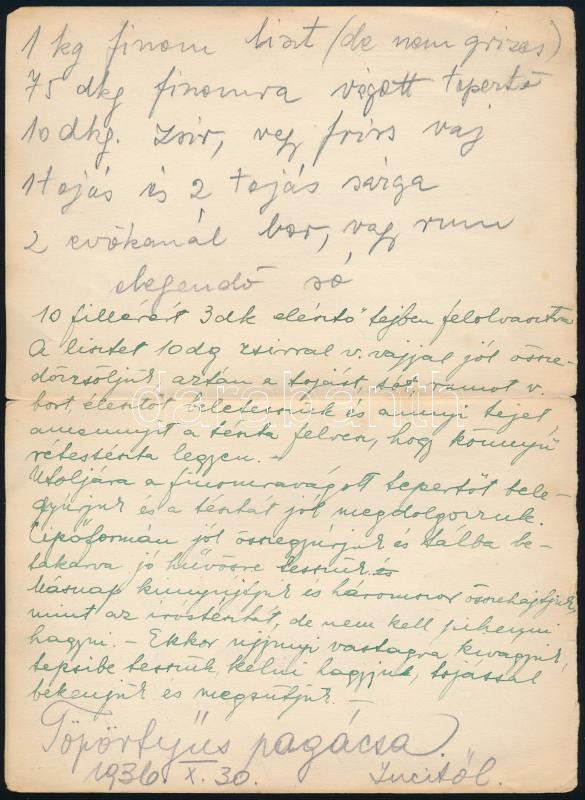 1 kg finom liszt (de nem grizes)
75 dkg finomra vágott tepertő
10 dkg. zsir, vagy friss vaj
1 tojás és 2 tojás sárga
2 evőkanál bor, vagy rum
elegendő só
10 fillérért 3dk élesztő tejben felolvasztva
A lisztet 10dg zsirral v. vajjal jól össze-
dörzsöljük aztán a tojást, sót, rumot v.
bort, élesztőt beletesszük és annyi tejet
amennyit a tészta felvesz, hogy könnyű
rétestészta legyen. -
Utoljára a finomravágott tepertőt bele-
gyúrjuk és a tésztát jól megdolgozzuk.
Cipóformán jól összegyúrjuk és tálba be-
takarva jó hűvösre tesszük és
Másnap kinyújtjuk és háromszor összehajtjuk,
mint az iróstésztát, de nem kell pihenni
hagyni. - Ekkor ujjnyi vastagra kivágjuk,
tepsibe tesszük, kelni hagyjuk, tojással
bekenjük és megsütjük. -
Töpörtyűs pagácsa.
1936. X. 30. Zucitól.
darabanth